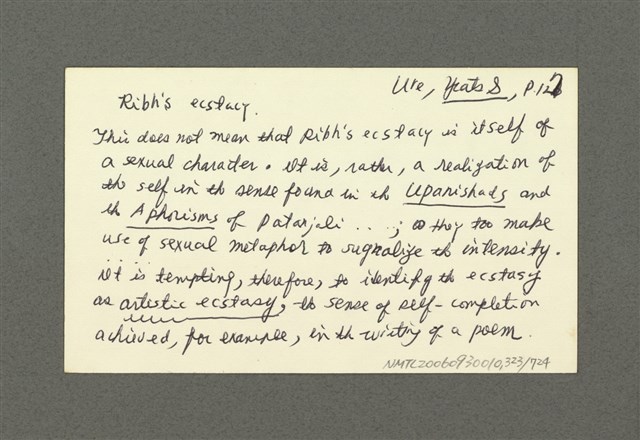 Ure, Yeats S, p.127
Ribh's ecstacy.
This does not mean that Ribh's ecstacy is itself of
a sexual character. It is, rather, a realization of
the self in th sense found in th Upanishads and
th Aphorisms of Patanjali . . . ; they too make
use of sexual metaphor to signalize th intensity.
. . . It is tempting, therefore, to identify th ecstasy
as artistic ecstasy, th sense of self-completion
achieved, for example, in th writing of a poem.
NMTL20060930010,323/724